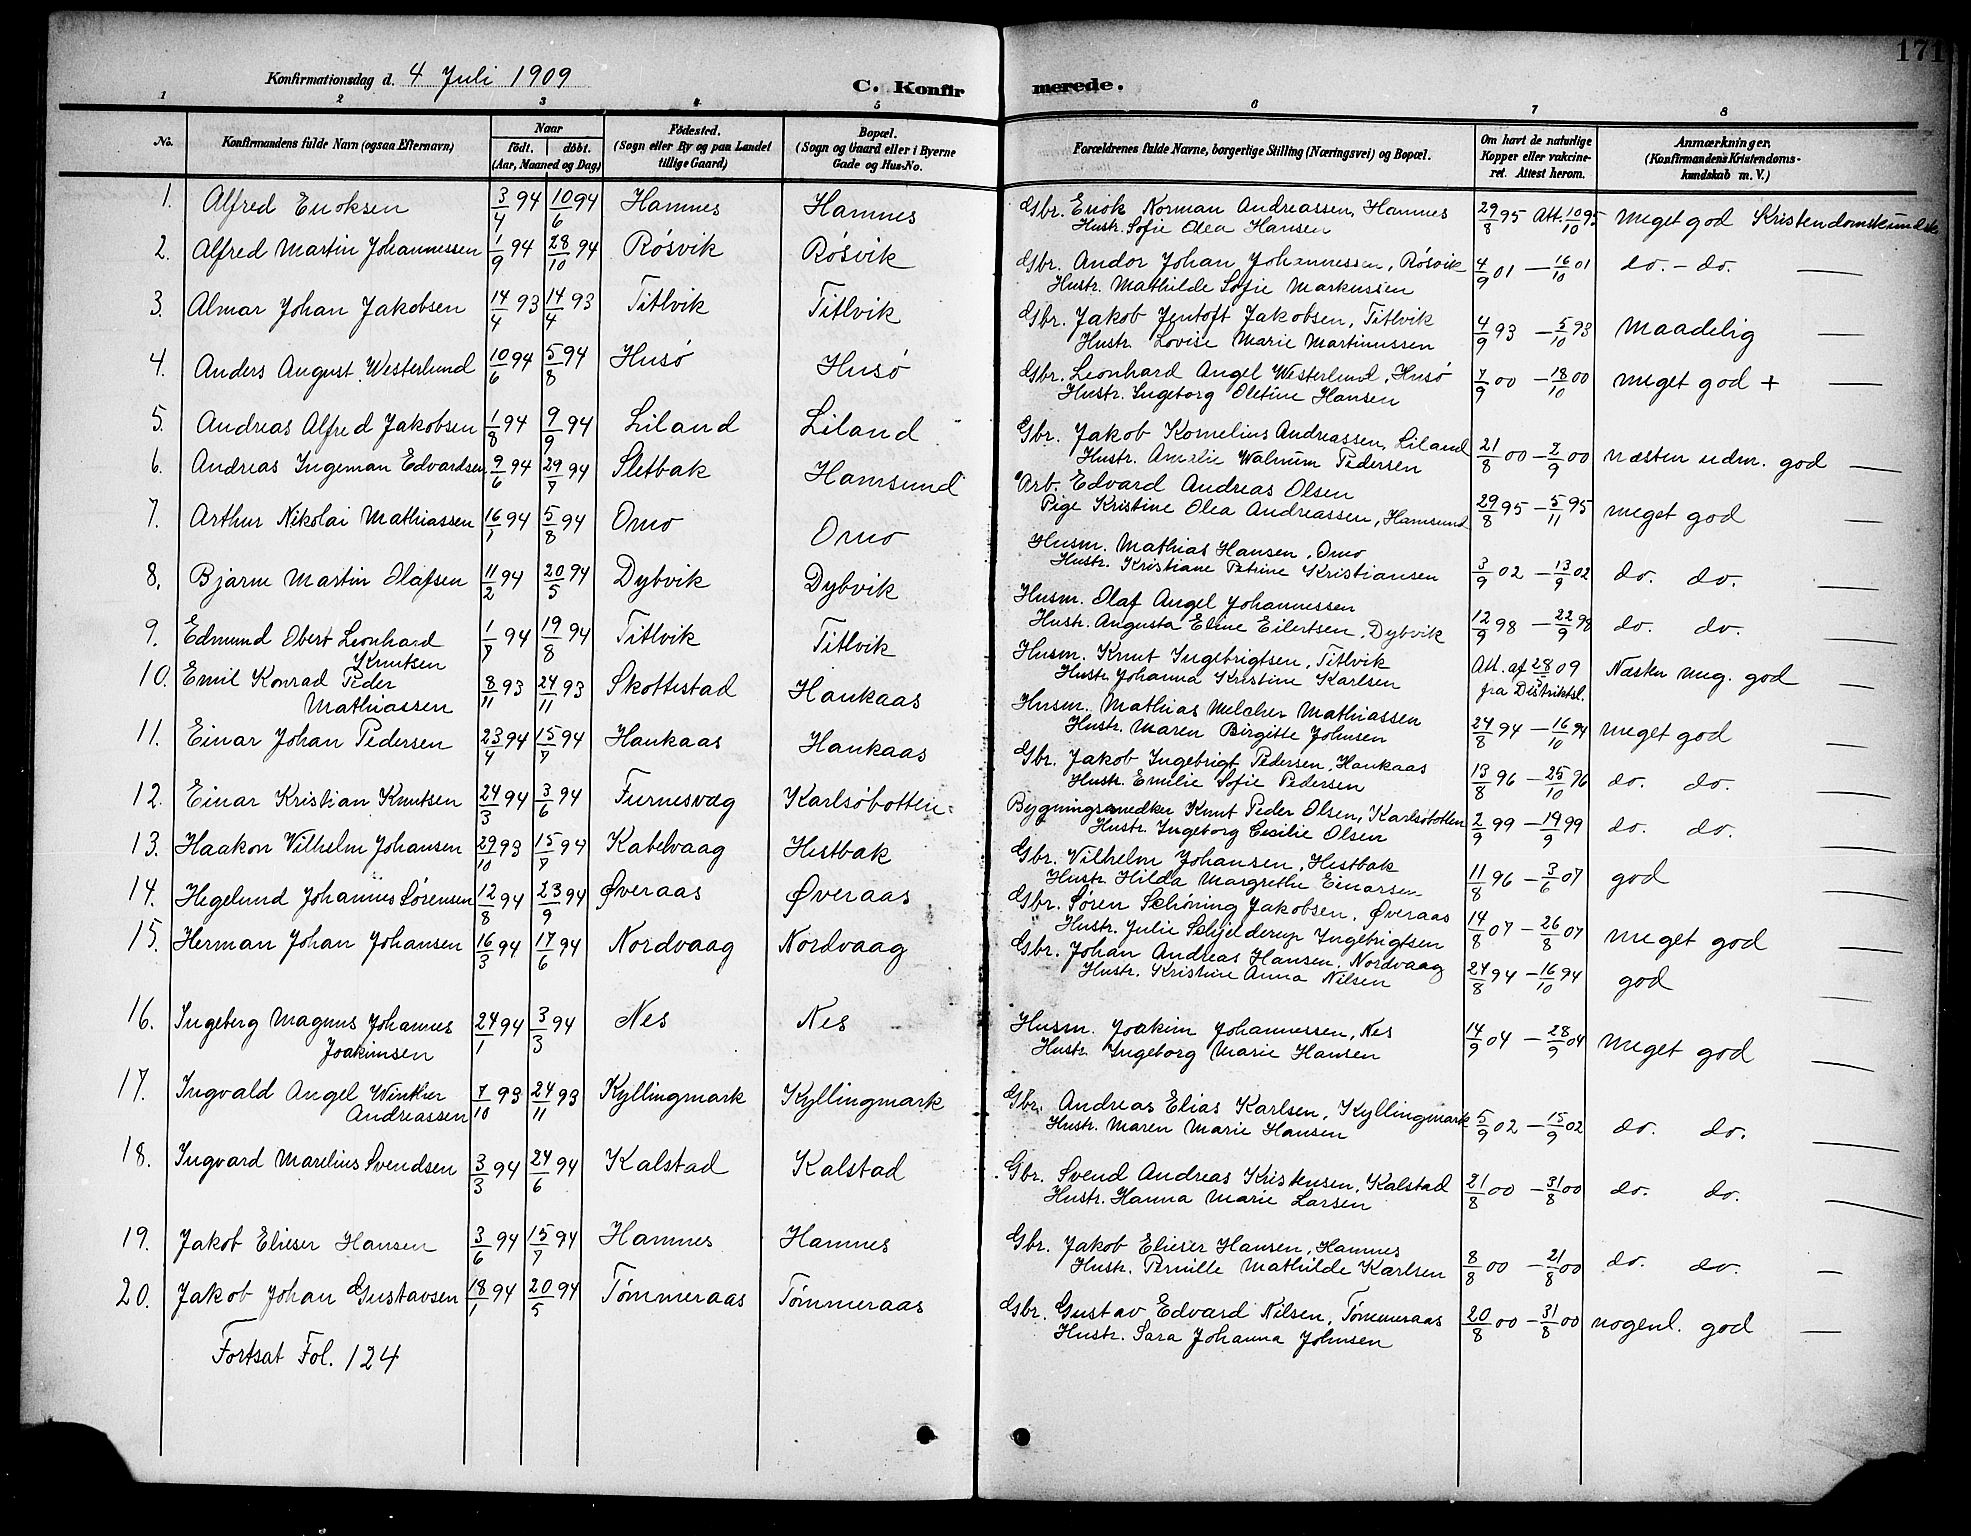 171
Konfirmationsdag d. 4 Juli 1909
C. Konfirmerede.
1 2 3 4 5 6 7 8
No. Konfirmandens fulde Navn (ogsaa Efternavn) Naar født. døbt. (Aar, Maaned og Dag) Fødested. (Sogn eller By og paa Landet tillige Gaard) Bopæl. (Sogn og Gaard eller i Byerne Gade og Hus-No. Forældrenes fulde Navne, borgerlige Stilling (Næringsvei) og Bopæl. Om havt de naturlige Kopper eller vakcineret. Attest herom. Anmærkninger. (Konfirmandens Kristendomskundskab m. V.)
1. Alfred Enoksen 3/4 94 10/6 94 Hamnes Hamnes Gbr. Enok Norman Andreassen, Hamnes 29/8 95 Att. 10/10 95 Meget god Kristendomskundsk
Hustr. Sofie Olea Hansen
2. Alfred Martin Johannessen 1/9 94 28/10 94 Røsvik Røsvik Gbr. Andor Johan Johannessen, Røsvik 4/9 01 — 16/10 01 do. – do. —
Hustr. Mathilde Sofie Markussen
3. Almar Johan Jakobsen 14/4 93 14/4 93 Titlvik Titlvik Gbr. Jakob Jentoft Jakobsen, Titlvik 4/9 93 — 5/10 93 Maadelig —
Hustr. Lovise Marie Martinussen
4. Anders August Westerlund 10/6 94 5/8 94 Husø Husø Gbr. Leonhard Angel Westerlund, Husø 7/9 00 — 18/10 00 meget god + —
Hustr. Ingeborg Oletine Hansen
5. Andreas Alfred Jakobsen 1/8 94 9/9 94 Liland Liland Gbr. Jakob Kornelius Andreassen, Liland 21/8 00 — 2/9 00 næsten udm. god —
Hustr. Amalie Walnum Pedersen
6. Andreas Ingeman Edvardsen 9/6 94 29/7 94 Sletbak Hamsund Arb. Edvard Andreas Olsen 29/8 95 — 5/11 95 meget god —
Pige Kristine Olea Andreassen, Hamsund
7. Arthur Nikolai Mathiassen 16/1 94 5/8 94 Omo Omo Husm. Mathias Hansen, Omo 3/9 02 — 13/9 02 do. do. —
Hustr. Kristiane Petrine Kristiansen
8. Bjarne Martin Olafsen 11/2 94 20/5 94 Dybvik Dybvik Husm. Olaf Angel Johannessen 12/9 98 — 22/9 98 do. do. —
Hustr. Augusta Eline Eilertsen, Dybvik
9. Edmund Obert Leonhard Knutsen 1/7 94 19/8 94 Titlvik Titlvik Husm. Knut Ingebrigtsen, Titlvik Att. af 28/5 09 fra Distriktsl. Næsten meg. god —
Hustr. Johanna Kristine Karlsen
10. Emil Konrad Peder Mathiassen 8/11 93 24/11 93 Skottestad Haukaas Husm. Mathias Melcher Mathiassen 24/8 94 — 16/10 94 meget god —
Hustr. Maren Birgitte Johnsen
11. Einar Johan Pedersen 23/4 94 15/7 94 Haukaas Haukaas Gbr. Jakob Ingebrigt Pedersen, Haukaas 13/8 96 — 25/10 96 do. do. —
Hustr. Emilie Sofie Pedersen
12. Einar Kristian Knutsen 24/3 94 3/6 94 Furnesvæg Karlsøbotten Bygningssnedker Knut Peder Olsen, Karlsøbotten 2/9 99 — 19/9 99 do. do. —
Hustr. Ingeborg Cesilie Olsen
13. Haakon Vilhelm Johansen 29/10 93 15/7 94 Kabelvaag Hestbak Gbr. Vilhelm Johansen, Hestbak 11/8 96 — 3/6 07 god —
Hustr. Hilda Margrethe Einarsen
14. Hegelund Johannes Sørensen 12/8 94 23/9 94 Øveraas Øveraas Gbr. Søren Schøning Jakobsen, Øveraas 14/8 07 — 26/8 07 meget god —
Hustr. Julie Schjelderup Ingebrigtsen
15. Herman Johan Johansen 16/3 94 17/6 94 Nordvaag Nordvaag Gbr. Johan Andreas Hansen, Nordvaag 24/8 94 — 16/10 94 god —
Hustr. Kristine Anna Nilsen
16. Ingeberg Magnus Johannes Joakimsen 24/1 94 3/3 94 Nes Nes Husm. Joakim Johannessen, Nes 14/9 04 — 28/9 04 meget god —
Hustr. Ingeborg Marie Hansen
17. Ingvald Angel Winther Andreassen 7/10 93 24/11 93 Kyllingmark Kyllingmark Gbr. Andreas Elias Karlsen, Kyllingmark 5/9 02 — 15/9 02 do. do. —
Hustr. Maren Marie Hansen
18. Ingvard Marelius Svendsen 3/3 94 24/6 94 Kalstad Kalstad Gbr. Svend Andreas Kristensen, Kalstad 21/8 00 — 31/8 00 do. do. —
Hustr. Hanna Marie Larsen
19. Jakob Elieser Hansen 3/6 94 15/7 94 Hamnes Hamnes Gbr. Jakob Elieser Hansen, Hamnes 8/8 00 — 21/8 00 do. do. —
Hustr. Pernille Mathilde Karlsen
20. Jakob Johan Gustavsen 18/1 94 20/5 94 Tømmeraas Tømmeraas Gbr. Gustav Edvard Nilsen, Tømmeraas 20/8 00 — 31/8 00 nogenl. god —
Hustr. Sara Johanna Johnsen
Fortsat Fol. 124